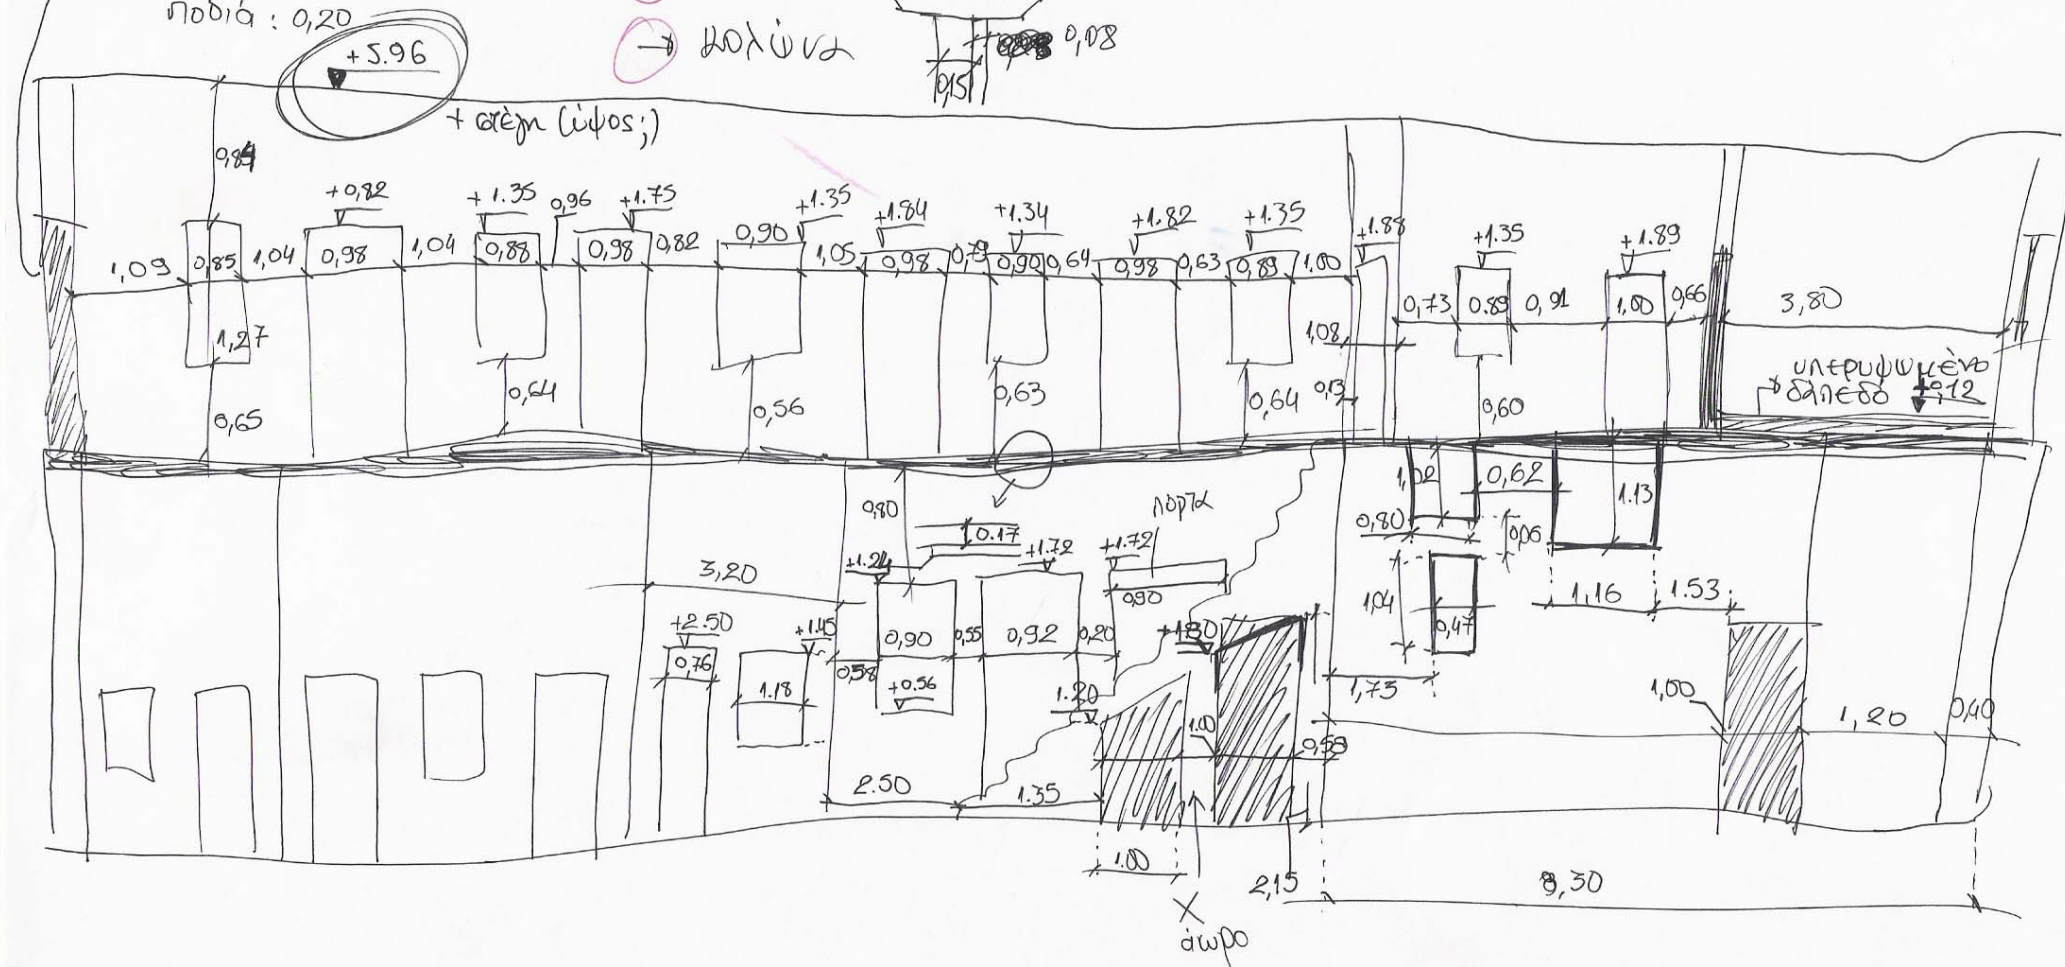 ποδιά : 0,20
+5.96
→ κολώνα
0,08
0,15
+ στέγη (ύψος;)
0,84
+0,82
+1.35
0,96
+1.75
+1.35
+1.84
+1.34
+1.82
+1.35
+1.88
+1.35
+1.89
1,09
0,85
1,04
0,98
1,04
0,88
0,98
0,82
0,90
1,05
0,98
0,79
0,90
0,64
0,98
0,63
0,89
1.00
0,73
0.89
0,91
1.00
0,66
3,80
1,27
1,08
0,65
0,64
0,56
0,63
0,64
0,13
0,60
υπερυψωμένο
δάπεδο
0,80
0.17
πόρτα
1,02
0,62
1.13
0,80
3,20
+1.24
+1.72
+1.72
0,90
1,04
0,47
1,16
1.53
+2.50
+1.45
0,76
1.18
0,58
0,90
0,55
0,92
0,20
+0.56
1.20
1,73
1,00
1,20
0,40
1.00
2.50
1.35
1.00
2,15
8,30
X
άωρο